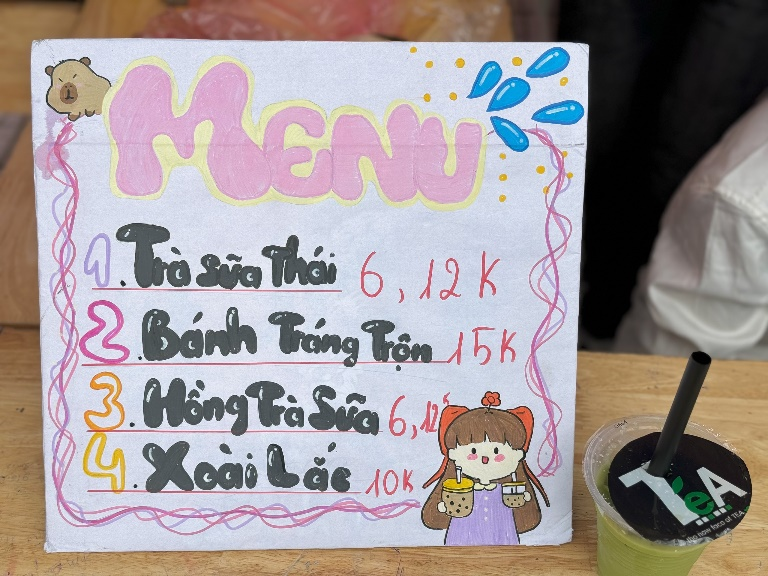 MENU
1. Trà Sữa Thái 6, 12K
2. Bánh Tráng Trộn 15K
3. Hồng Trà Sữa 6, 12K
4. Xoài Lắc 10K
TeA